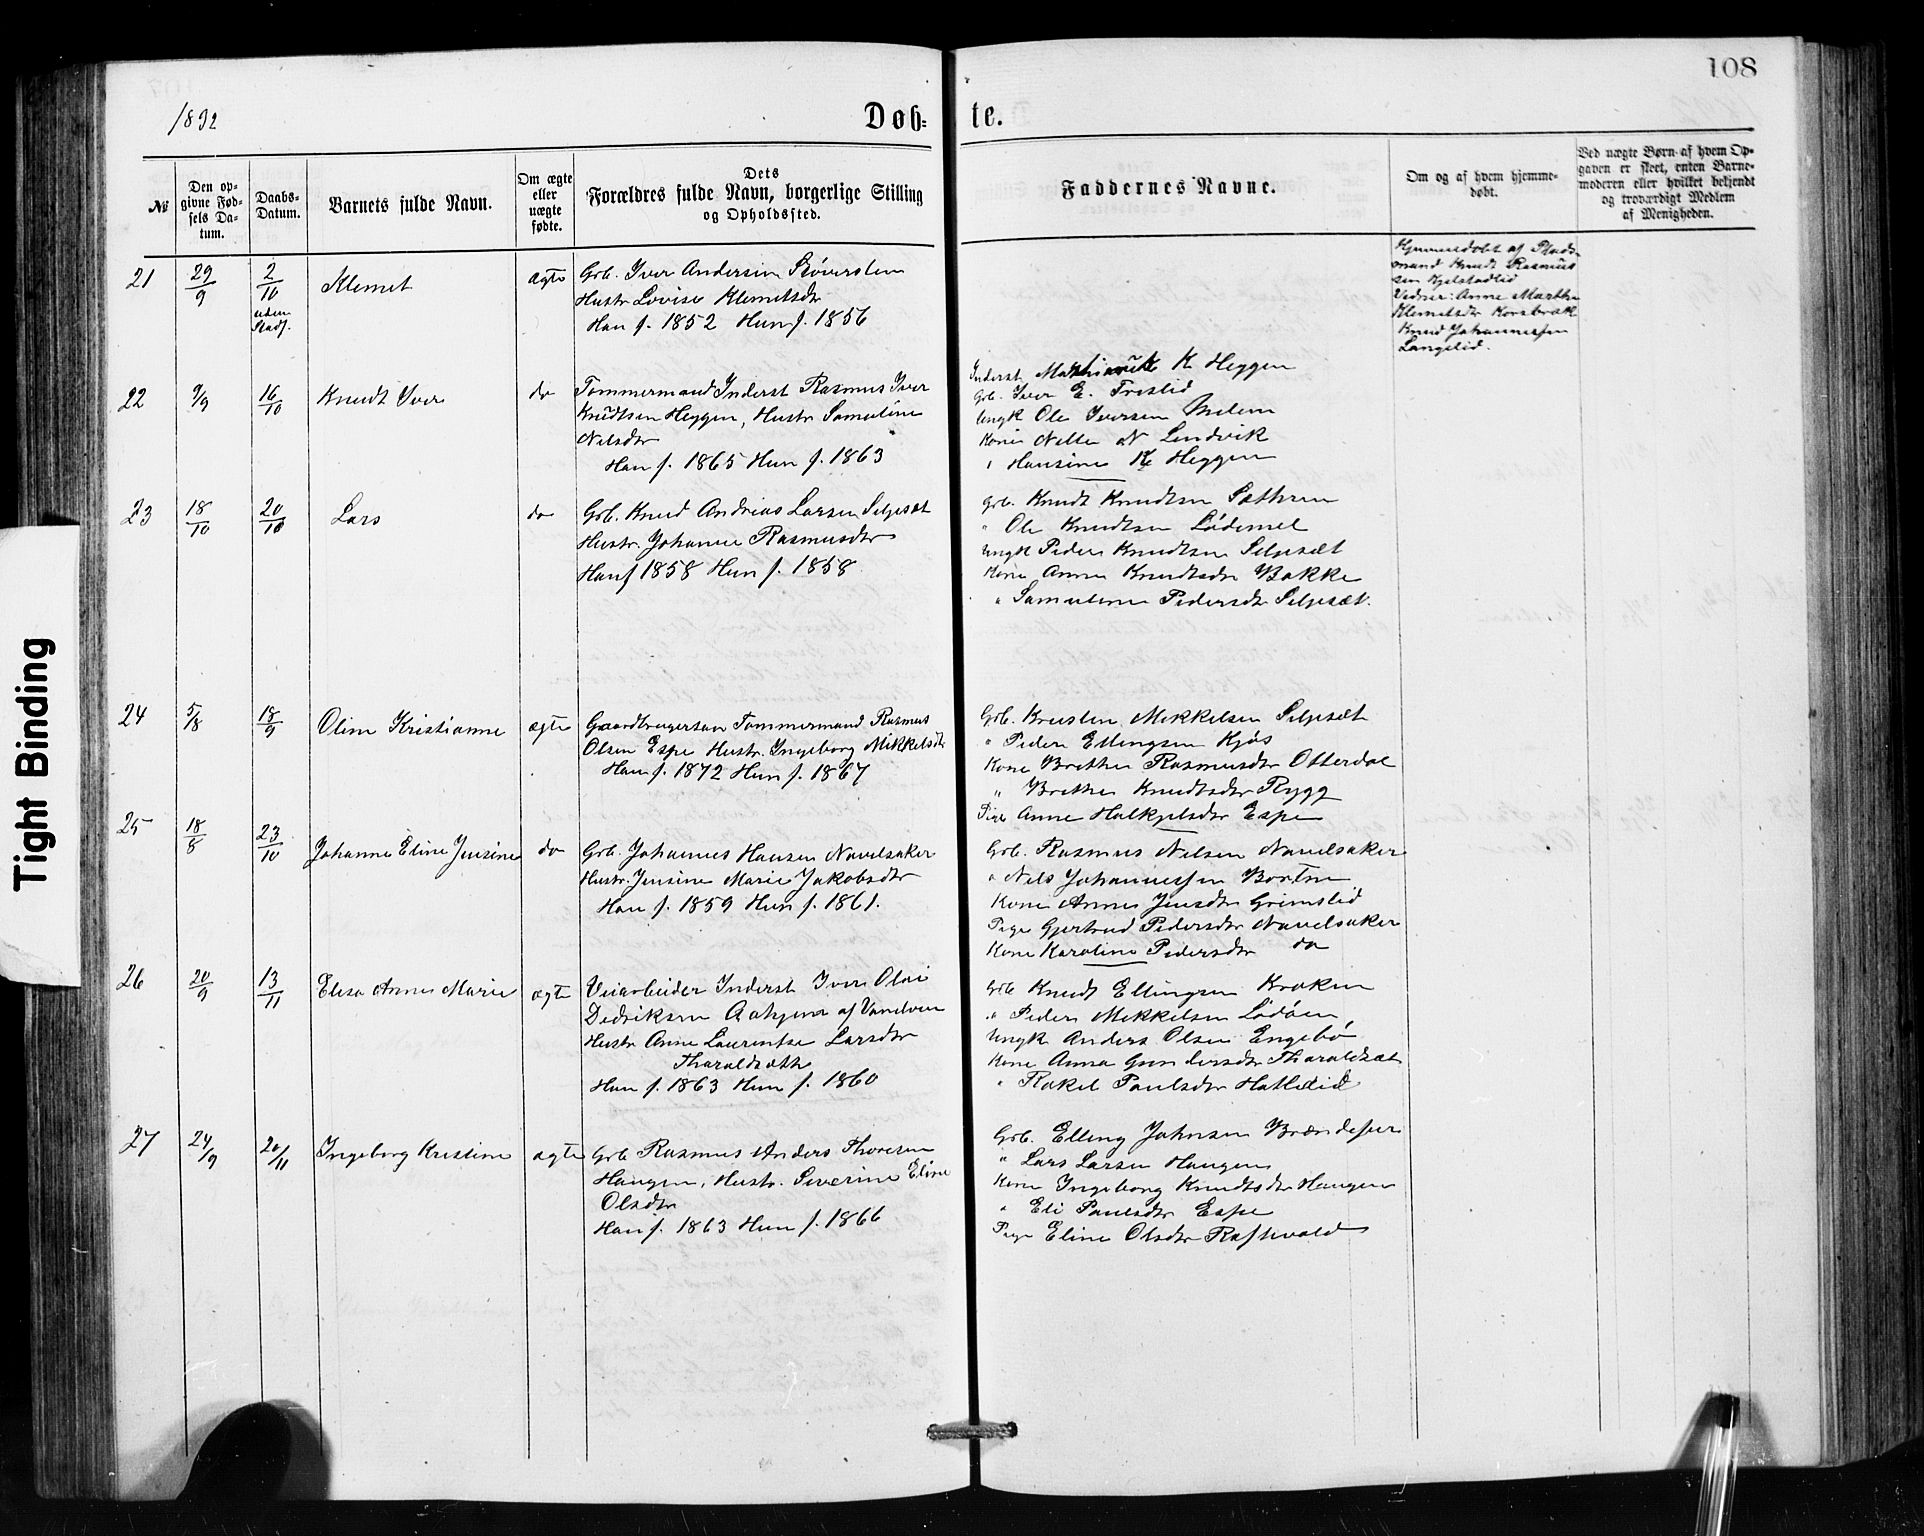 108
1892
Døb=
te.
№
Den op-
givne Fød-
sels Da-
tum.
Daabs-
Datum.
Barnets fulde Navn.
Om ægte
eller
uægte
fødte.
Dets
Forældres fulde Navn, borgerlige Stilling
og Opholdssted.
Faddernes Navne.
Om og af hvem hjemme-
døbt.
Ved uægte Børn af hvem Op-
gaven er skeet, enten Barne-
moderen eller hvilket bekjendt
og troværdigt Medlem
af Menigheden.
21
29/9
2/10
uden
Stadf.
Klemet
ægte
Grb. Iver Andersen
Hustr Lovise Klemetsdtr
Han f. 1852 Hun f. 1856
Hjemmedøbt af Plads-
mand Knudt Rasmus
sen Kjelstadlid
Vidner: Anne Marthe
Klemetsdtr Korsbrek
Knud Johannessen
Langelid.
22
9/9
16/10
Knudt Iver
do
Tømmermand Inderst Rasmus Iver
Knudtsen Heggen, Hustr Samuline
Nilsdtr
Han f. 1865 Hun f. 1863
Inderst K Heggen
Grb. Iver E.
Ungk Ole Iversen
Kone N Lundvik
" Hansine K Heggen
23
18/10
20/10
Lars
do
Grb. Knud Andrias Larsen Seljesæt
Hustr. Johanne Rasmusdtr
Han f 1858 Hun f. 1858
Grb. Knudt Knudtsen Sæthren
" Ole Knudtsen Lødemel
Ungk Peder Knudtsen Seljesæt
Kone Anne Knudtsdtr Bakke
" Samuline Pedersdtr Seljesæt.
24
5/8
18/9
Oline Kristianne
ægte
Gaardbrugersøn Tømmermand Rasmus
Olsen Espe Hustr. Ingeborg Mikkelsdtr
Han f. 1872 Hun f. 1867
Grb. Kristen Mikkelsen Seljesæt
" Peder Ellingsen Kjøs
Kone Brithe Rasmusdtr Otterdal
" Brithe Knudtsdtr Rygg
Pige Anne Halkjelsdtr Espe
25
18/8
23/10
Johanne Eline Jensine
do
Grb. Johannes Hansen Navelsaker
Hustr. Jensine Marie Jakobsdtr
Han f. 1859 Hun f. 1861.
Grb. Rasmus Nilsen Navelsaker
" Nils Johannessen Bortne
Kone Anne Jensdtr Grimslid
Pige Gjertrud Pedersdtr Navelsaker
Kone Karoline Pedersdtr do
26
20/9
13/11
Elisa Anne Marie
ægte
Veiarbeider Inderst Iver Olai
Didriksen Aahjem af Vanelven
Hustr Anne Laurentse Larsdtr
Tharaldsæth
Han f. 1863 Hun f. 1860
Grb Knudt Ellingsen Kroken
" Peder Mikkelsen Lødøen
Ungk Anders Olsen Engebø
Kone Anna Gundersdtr Tharaldsæt
" Rakel Paulsdtr Hatledid
27
24/9
20/11
Ingeborg Kristine
ægte
Grb Rasmus Anders Thoresen
Haugen, Hustr. Severine Eline
Olsdtr
Han f. 1863 Hun f. 1866
Grb. Elling Johnsen
" Lars Larsen Haugen
Kone Ingeborg Knudtsdtr Haugen
" Eli Paulsdtr Espe
Pige Eline Olsdtr Raftevold
Tight Binding